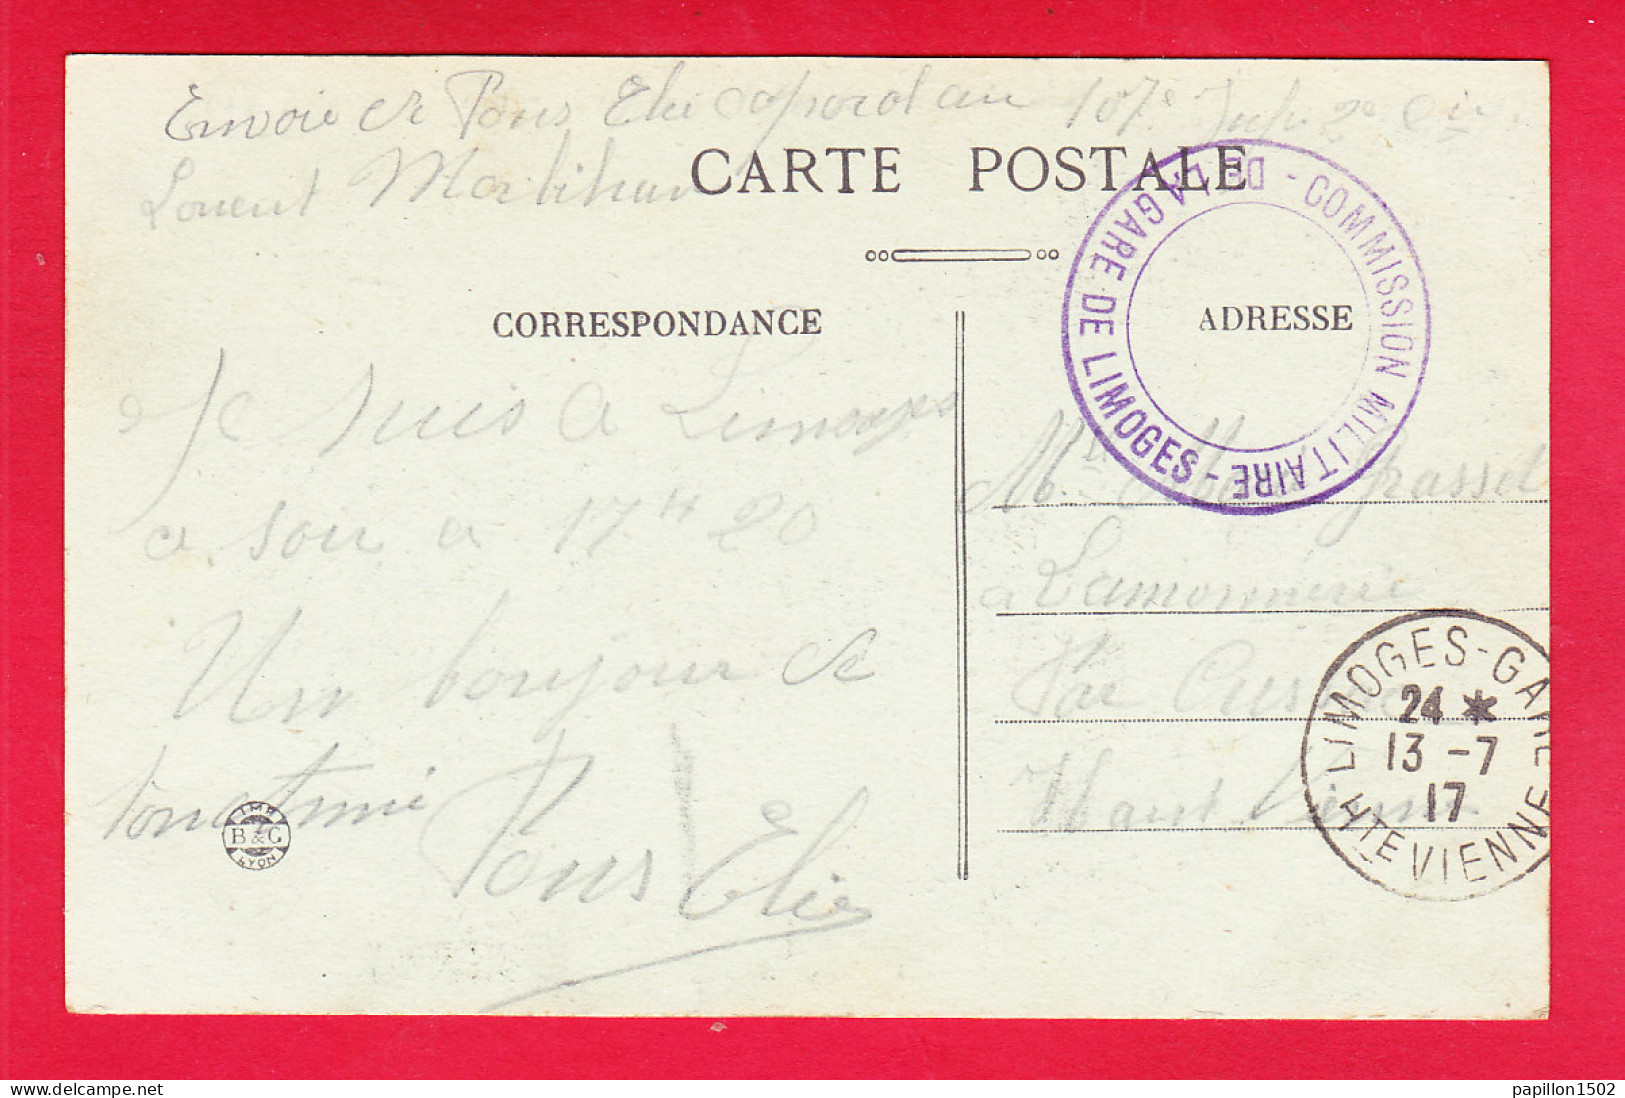 Envoie de Pons Elie caporal au 107e Inf. 2e Cie
Lorient Morbihan
CARTE POSTALE
COMMISSION MILITAIRE - DE LA GARE DE LIMOGES -
CORRESPONDANCE
ADRESSE
Je suis a Limoges
a soir a 17 H 20
Un bonjour de
ton ami
Pons Elie
Grassel
a Lamonnerie
Par
Haute Vienne
LIMOGES-GARE
24 *
13 -7
17
HTE VIENNE
IMP.
B & G
LYON
www.delcampe.net
papillon1502